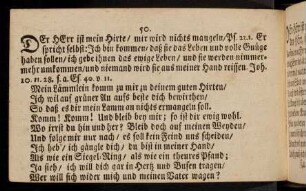 50.
DEr HErr ist mein Hirte/ mir wird nichts mangeln/ Ps. 23.1. Er
spricht selbst: Ich bin kommen/ daß sie das Leben und volle Gnüge
haben sollen/ ich gebe ihnen das ewige Leben/ und sie werden nimmer-
mehr umkommen/ und niemand wird sie aus meiner Hand reissen. Joh.
10. 11. 28. s. a. Es. 40. v. 11.
Mein Lämmlein komm zu mir zu deinem guten Hirten/
Ich wil auf grüner Au aufs beste dich bewirthen/
So daß es dir mein Lamm an nichts ermangeln soll.
Komm! Komm! Und bleib bey mir; so ist dir ewig wohl.
Wo irrst du hin und her? Bleib doch auf meinen Weyden/
Und folge mir nur nach/ es soll kein Feind uns scheiden/
Ich heb/ ich gängle dich/ du bist in meiner Hand/
Als wie ein Siegel-Ring/ als wie ein theures Pfand;
Ja sieh/ ich will dich gar in Hertz und Busen tragen/
Wer will sich wider mich und meinen Vater wagen?